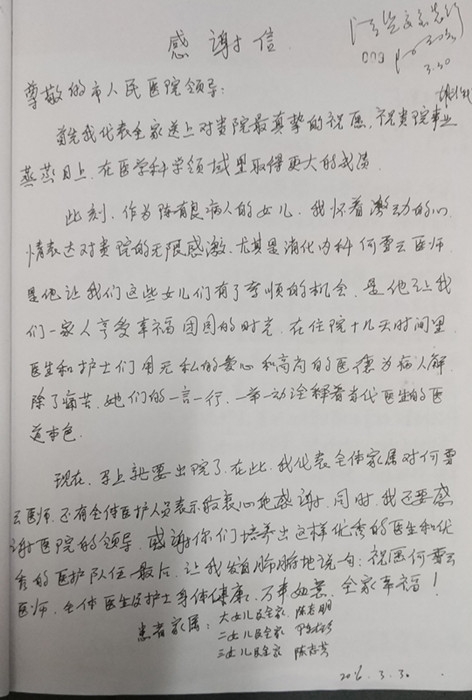 感谢信
3.30
尊敬的市人民医院领导:
首先我代表全家送上对贵院最真挚的祝愿,祝贵院事业
蒸蒸日上,在医学科学领域里取得更大的成绩
此刻,作为陈有良病人的女儿,我怀着激动的心
情表达对贵院的无限感激,尤其是消化内科何雪云医师
是他让我们这些女儿们有了孝顺的机会,是他让我
们一家人享受幸福团圆的时光,在住院十几天时间里
医生和护士们用无私的爱心和高尚的医德为病人解
除了痛苦,她们的一言一行,一举一动诠释着当代医生的医
道本色.
现在,马上就要出院了,在此,我代表全体家属对何雪
云医师,还有全体医护人员表示最衷心地感谢,同时,我还要感
谢医院的领导,感谢你们培养出这样优秀的医生和优
秀的医护队伍最后,让我发自肺腑地说句:祝愿何雪云
医师,全体医生及护士身体健康,万事如意,全家幸福!
患者家属:大女儿及全家
二女儿及全家
三女儿及全家
3.30